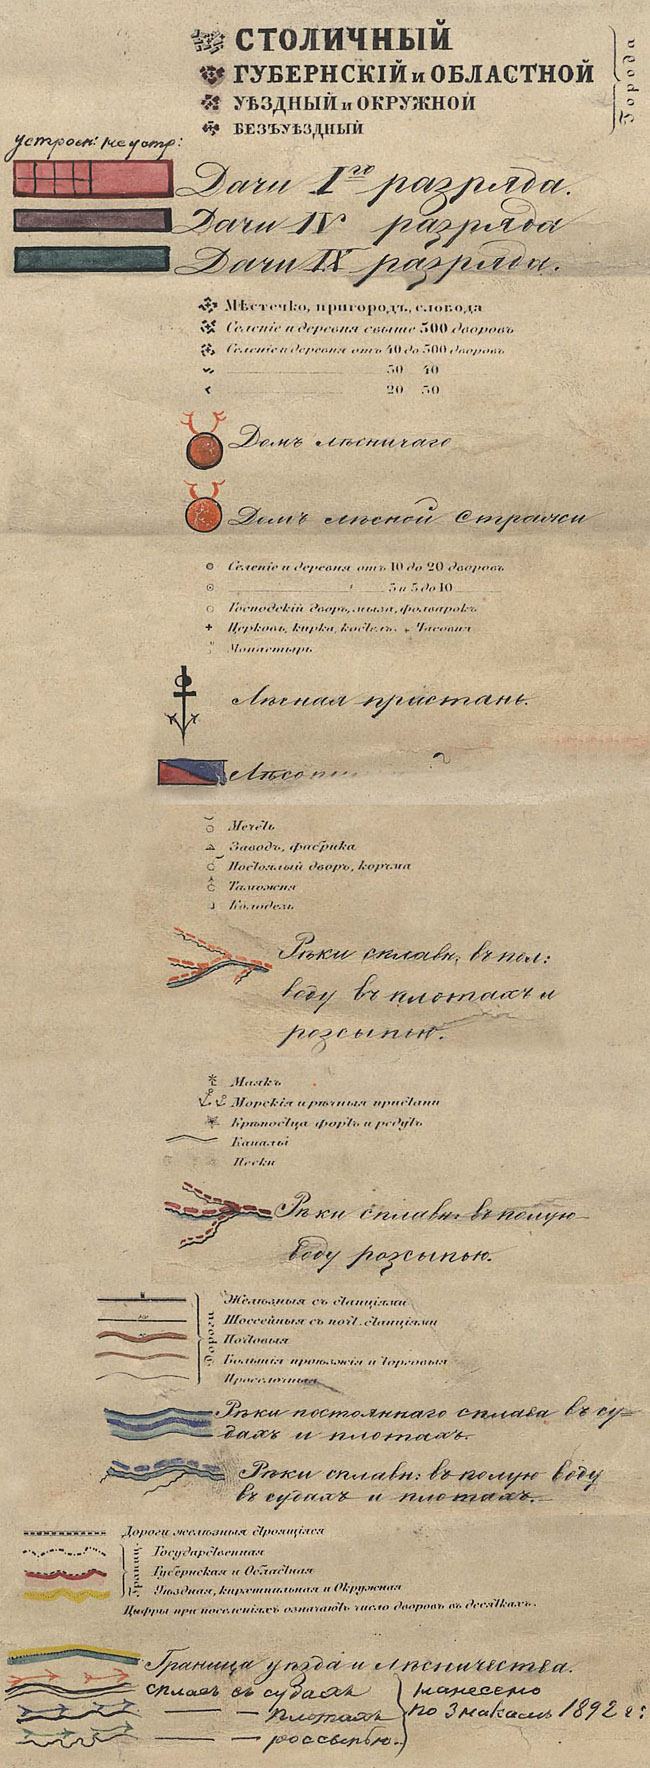 СТОЛИЧНЫЙ
ГУБЕРНСКІЙ и ОБЛАСТНОЙ
УѢЗДНЫЙ и ОКРУЖНОЙ
БЕЗЪУѢЗДНЫЙ
Города
устроен: не устр:
Дачи Iго разряда.
Дачи IV разряда
Дачи IX разряда.
Мѣстечко, пригородъ, слобода
Селеніе и деревня свыше 300 дворовъ
Селеніе и деревня отъ 40 до 300 дворовъ
30 40
20 30
Домъ лѣсничаго
Домъ лѣсной стражи
Селеніе и деревня отъ 10 до 20 дворовъ
5 и 5 до 10
Господскій дворъ, мыза, фольварокъ
Церковь, кирка, костелъ. Часовня
Монастырь
Лѣсная пристань.
Мечеть
Заводъ, фабрика
Постоялый дворъ, корчма
Таможня
Колодезь
Рѣки сплавн: въ пол:
воду въ плотахъ и
розсыпью.
Маякъ
Морскія и рѣчныя пристани
Крѣпостца фортъ и редутъ
Каналы
Пески
Рѣки сплавн: въ полую
воду розсыпью.
Дороги
Желѣзныя съ станціями
Шоссейныя съ почт. станціями
Почтовыя
Большія проѣзжія и торговыя
Проселочныя
Рѣки постояннаго сплава въ су=
дахъ и плотахъ.
Рѣки сплавн: въ полую воду
въ судахъ и плотахъ.
Дороги желѣзныя строящіяся
Границ.
Государственная
Губернская и Областная
Уѣздная, кирхшпильная и Окружная
Цифры при поселеніяхъ означаютъ число дворовъ въ десяткахъ.
Граница уѣзда и лѣсничества.
сплавъ съ судахъ
— — плотахъ
— — россыпью.
нанесено
по знакамъ 1892 г: